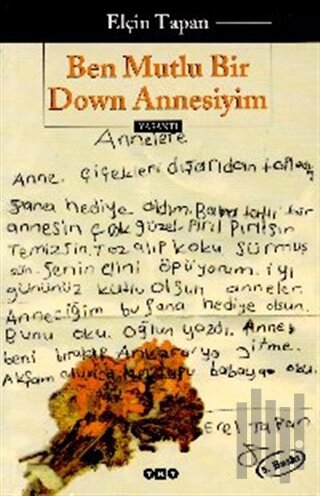 Elçin Tapan
Ben Mutlu Bir
Down Annesiyim
YAŞANTI
Annelere
Anne. Çiçekleri dışarıdan topladım
Sana hediye aldım. Bana tatlı bir
annesin çok güzel. Pırıl Pırılsın
Temizsin. Toz alıp koku sürmüş
sün. Senin elini öpüyorum. iyi
gününüz kutlu olsun anneler.
Anneciğim bu sana hediye olsun.
Bunu oku. Oğlun yazdı. Anne
beni bırakıp Ankara'ya gitme.
Akşam olunca mektubu babaya oku.
Erel Tapan
5. Baskı
YKY